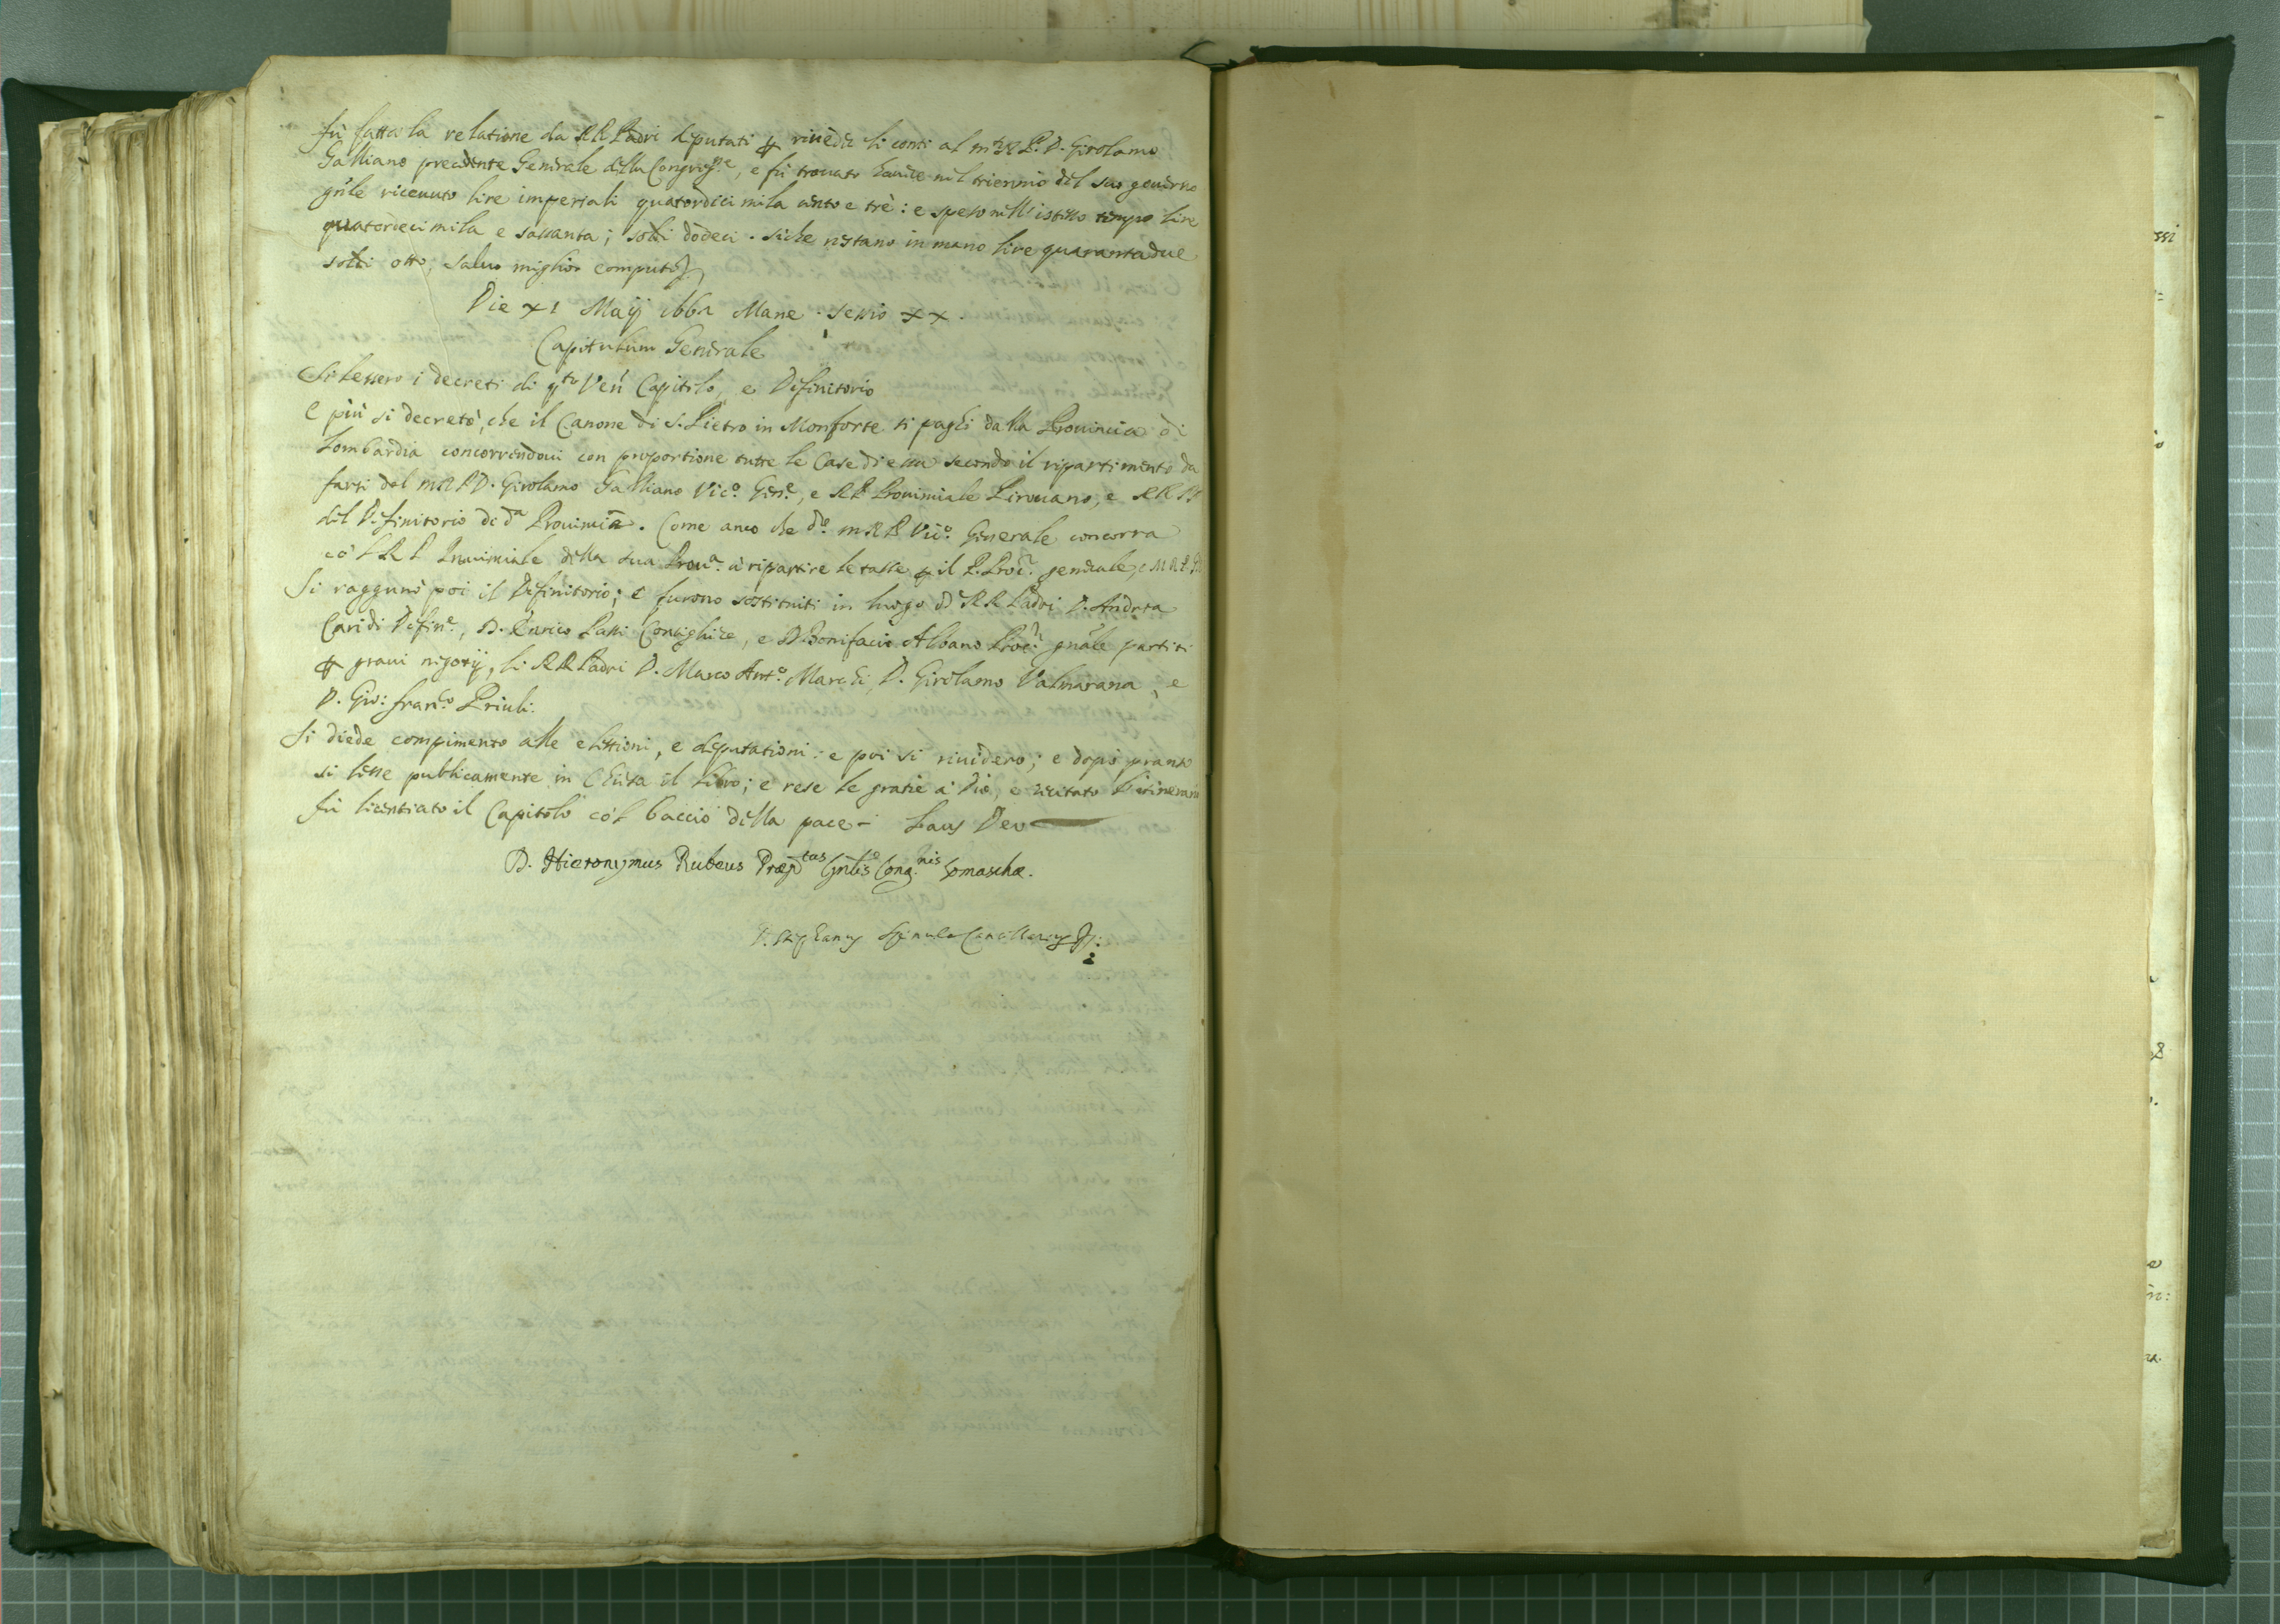 fù fatta la relatione da RR Padri deputati p riueder li conti al m R P. D. Girolamo
Galliano precedente Generale della Congreg.ne, e fù trouato hauere nel triennio del suo gouerno
gn̄le riceuuto lire imperiali quatordici mila cento e trè: e speso nell'istesso tempo lire
quatordeci mila e sassanta; soldi dodeci. siche restano in mano lire quarantadue
soldi otto, saluo miglior computo
Die XI Maij 1661 Mane. Sessio XX.
Capitulum Generale
Si lessero i decreti di q.to Ven. Capitolo, e Definitorio
E più si decretò, che il Canone di S. Pietro in Monforte si paghi dalla Prouincia di
Lombardia concorrendoui con proportione tutte le Case di essa secondo il ripartimento da
farsi dal m R P D. Girolamo Galliano Vic.o Gen.e, e R P Prouinciale Pirouano, e RR PP
del Definitorio di d.a Prouincia. Come anco che d.o m R P Vic.o Generale concorra
co'l R P Prouinciale della sua Prou.a a ripartire le tasse p il P. Proc.r generale, e M R P
Si ragguno poi il Definitorio; e furono sostituiti in luogo de RR Padri D. Andrea
Caridi Defin.e, D. Enrico Patti Consigliere, e D. Bonifacio Albano Proc.r gn̄ale partiti
p graui negotij, li RR Padri D. Marco Ant.o Marchi, D. Girolamo Valmarana, e
D. Gio: Fran.co Priuli.
Si diede compimento alle elettioni, e deputationi: e poi si riuidero; e dopò pranso
si lesse publicamente in Chiesa il Libro; e rese le gratie à Dio, e recitato l'itinerario
fù licentiato il Capitolo co'l baccio della pace - Laus Deo
D. Hieronymus Rubeus Præp.tus Gn̄lis Cong.nis Somaschæ.
D. Stephanus Spinula Cancellarius